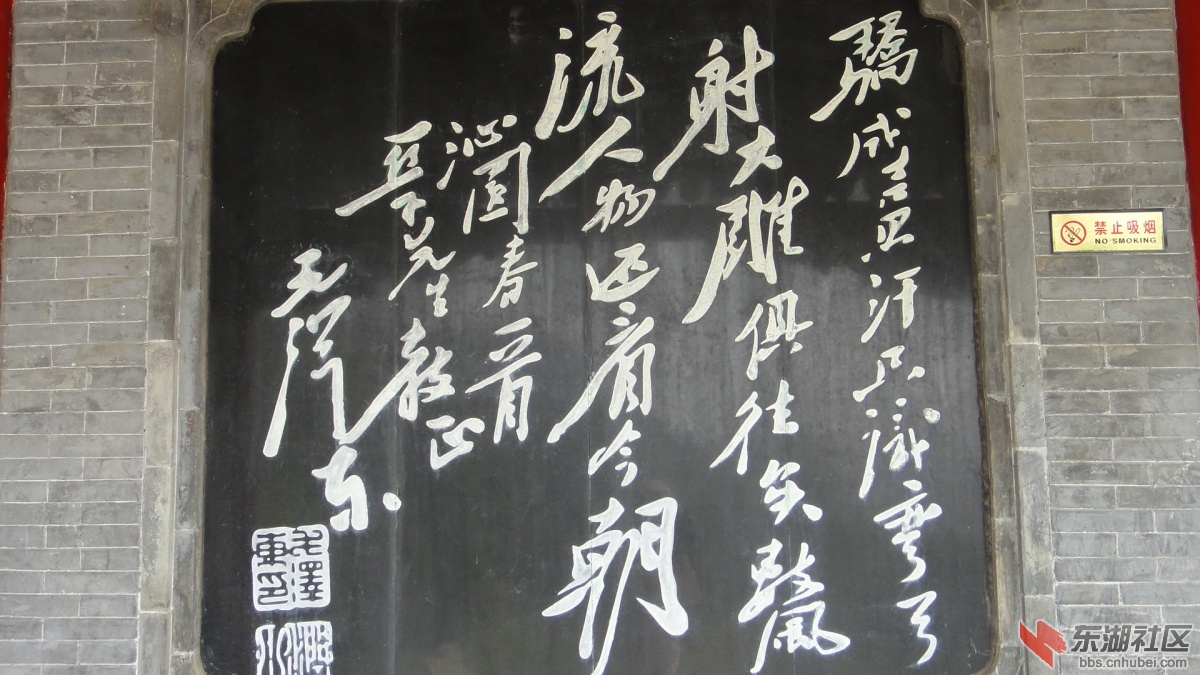 驕成吉思汗只識彎弓
射大雕俱往矣數風
流人物还看今朝
沁園春一首
亞子先生教正
毛泽东
毛澤東印
禁止吸烟
NO SMOKING
东湖社区
bbs.cnhubei.com